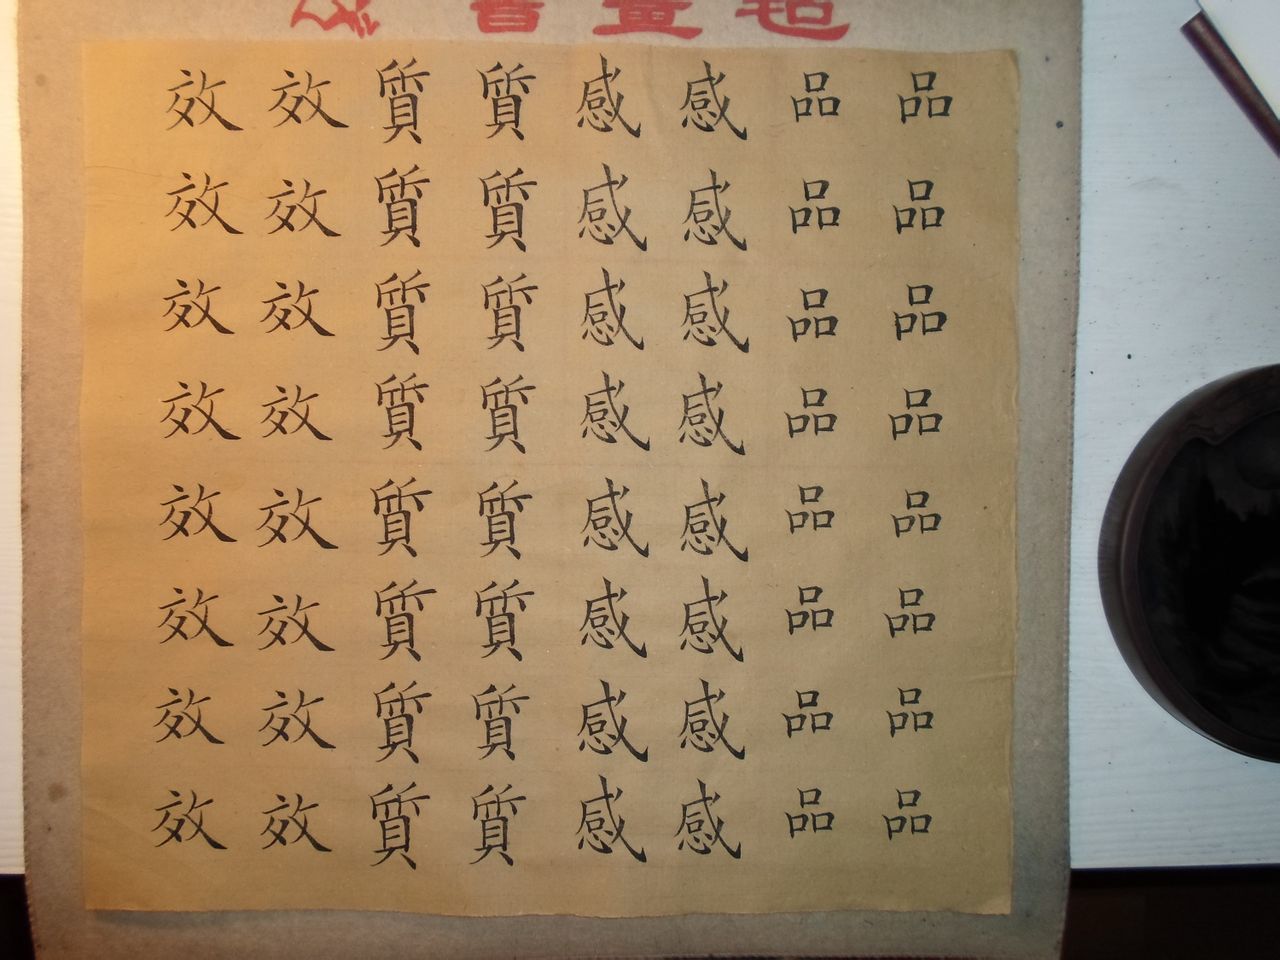 書畫毡
品品品品品品品品
品品品品品品品品
感感感感感感感感
感感感感感感感感
質質質質質質質質
質質質質質質質質
效效效效效效效效
效效效效效效效效